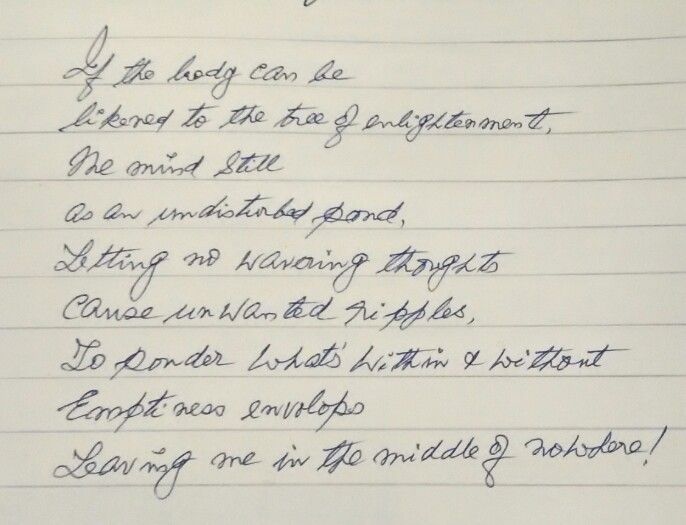 If the body can be
likened to the tree of enlightenment,
The mind still
as an undisturbed pond,
Letting no wavering thoughts
Cause unwanted ripples,
To ponder what's within & without
Emptiness envelops
Leaving me in the middle of nowhere!